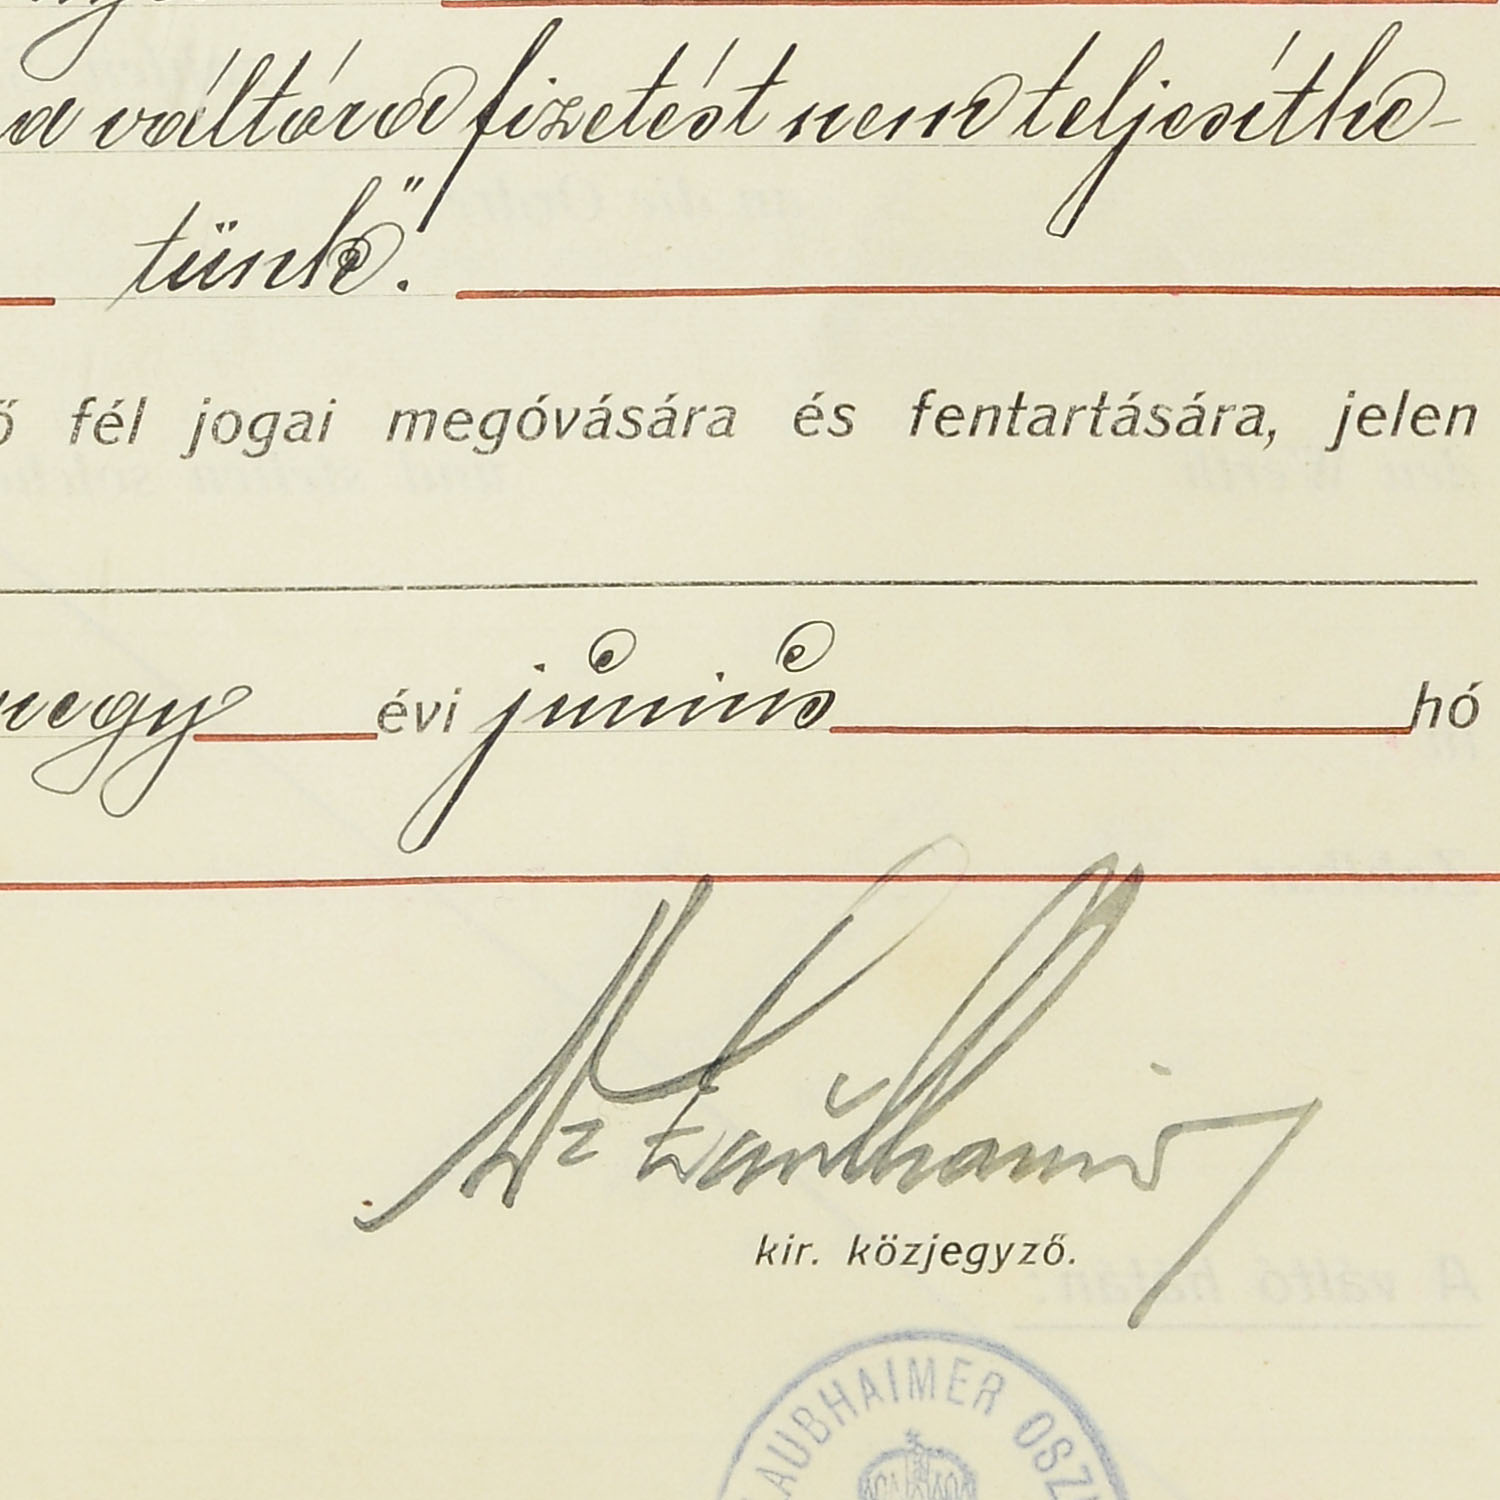 a váltóra fizetést nem teljesíthe-
tünk."
ő fél jogai megóvására és fentartására, jelen
negy évi június hó
Dr
kir. közjegyző.
AUBHAIMER OSZ